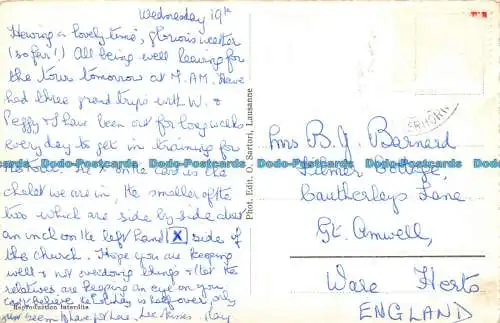 Wednesday 19th
Having a lovely time, glorious weather
(so far!) All being well leaving for
the tour tomorrow at 7 A.M. Have
had three grand trips with W. &
Peggy & I have been out for long walks
every day to get in training for
the X on the card is the
chalet we are in, the smaller of the
two which are side by side about
an inch on the left hand X side of
the church. Hope you are keeping
well & not overdoing things & that the
relatives are keeping an eye on you
can't believe the holiday is half over, only
seems
Mrs B. Y. Barnard
College,
Cautherleys Lane,
Gt. Amwell,
Ware Herts
ENGLAND
Phot. Edit. O. Sartori, Lausanne
Reproduction interdite
Dodo-Postcards Dodo-Postcards Dodo-Postcards Dodo-Postcards